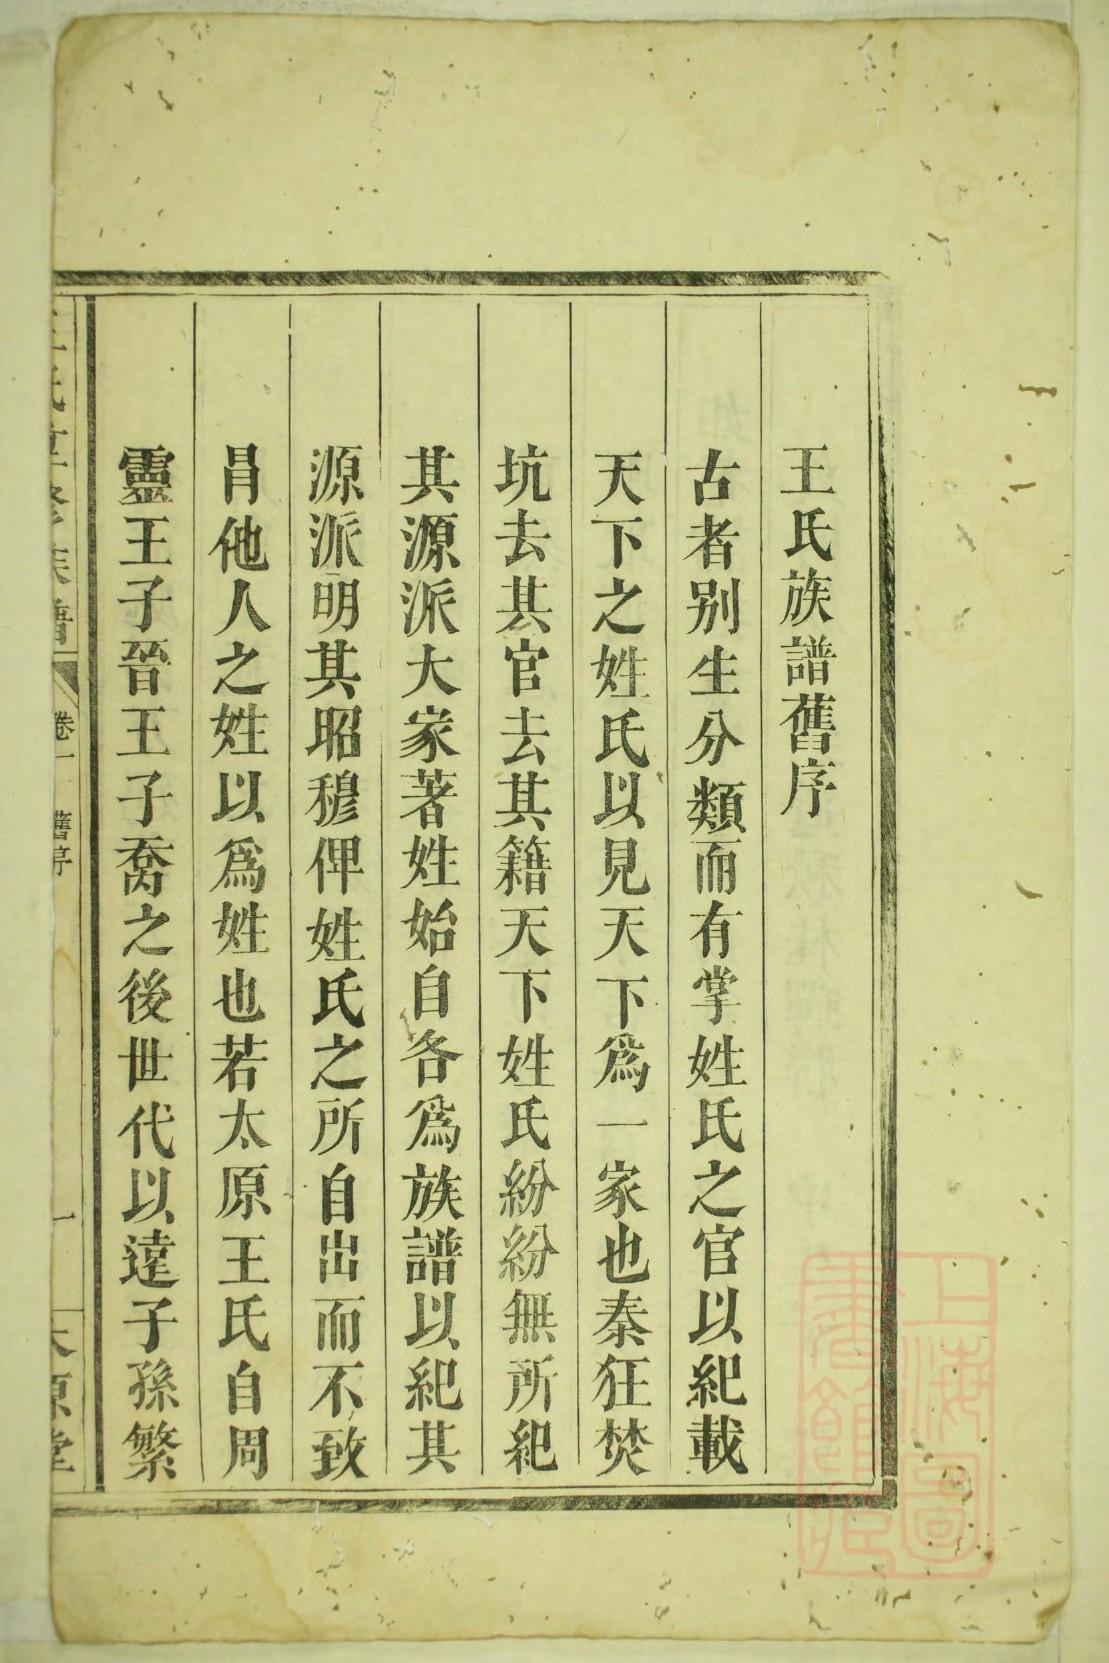 王氏族譜舊序
古者別生分類而有掌姓氏之官以紀載
天下之姓氏以見天下為一家也秦狂焚
坑去其官去其籍天下姓氏紛紛無所紀
其源派大家著姓始自各為族譜以紀其
源派明其昭穆俾姓氏之所自出而不致
冐他人之姓以為姓也若太原王氏自周
靈王子晉王子喬之後世代以遠子孫繁
族譜
卷一
舊序
一
太原堂
上海圖書館藏